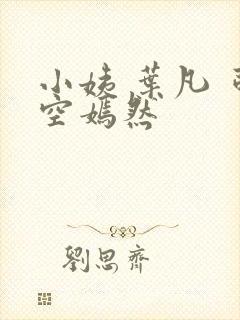 小姨 葉凡
空嫣然
劉思齊